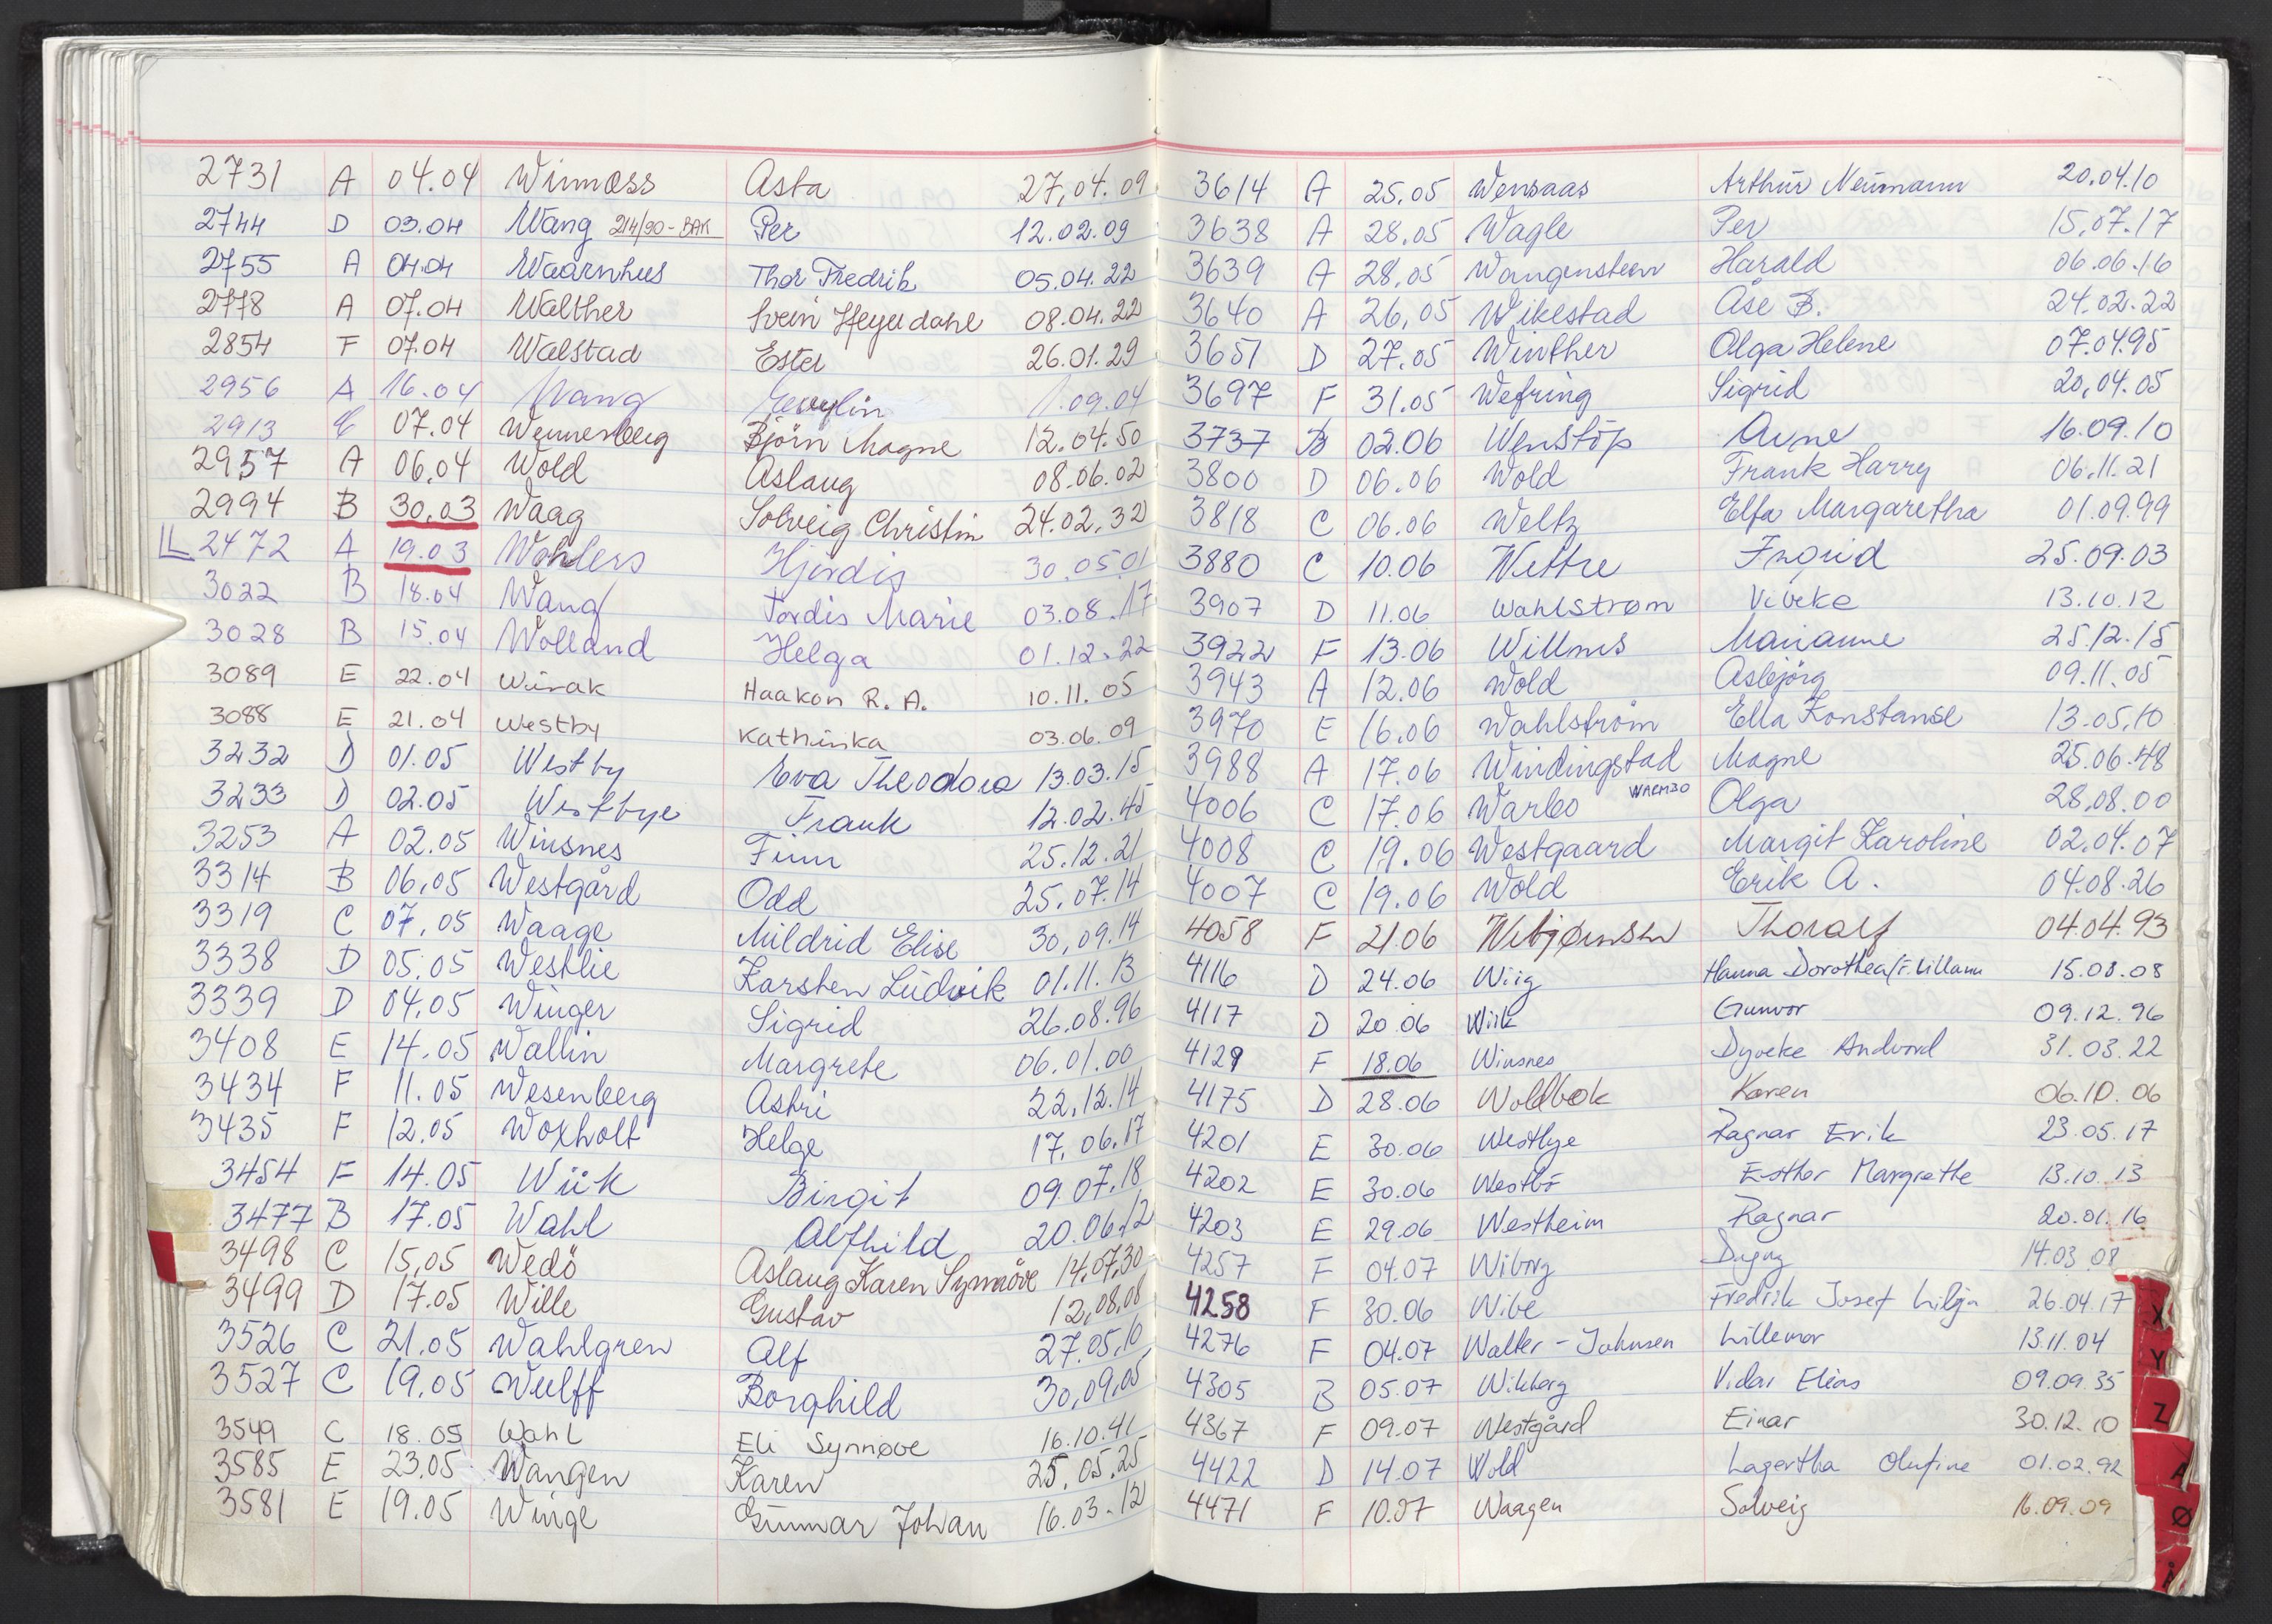 2731 A 04.04 Winmoss Asta 27.04.09
2744 D 03.04 Wang 214/90-BAK Per 12.02.09
2755 A 04.04 Waarnhus Thor Fredrik 05.04.22
2778 A 07.04 Walther Svein Heyerdahl 08.04.22
2854 F 07.04 Walstad Ester 26.01.29
2956 A 16.04 Wang .09.04
2913 E 07.04 Wennerberg Björn Magne 12.04.50
2957 A 06.04 Wold Aslaug 08.06.02
2994 B 30.03 Waag Solveig Christin 24.02.32
LL 2472 A 19.03 Wahlers Hjördis 30.05.01
3022 B 18.04 Wang Tordis Marie 03.08.17
3028 B 15.04 Wolland Helga 01.12.22
3089 E 22.04 Wůrak Haakon R. A. 10.11.05
3088 E 21.04 Westby Kathinka 03.06.09
3232 D 01.05 Westby Eva Theodora 13.03.15
3233 D 02.05 Westbye Frank 12.02.45
3253 A 02.05 Winsnes Finn 25.12.21
3314 B 06.05 Westgård Odd 25.07.14
3319 C 07.05 Waage Mildrid Elise 30.09.14
3338 D 05.05 Westlie Karsten Ludvik 01.11.13
3339 D 04.05 Winger Sigrid 26.08.96
3408 E 14.05 Wallin Margrete 06.01.00
3434 F 11.05 Wesenberg Astri 22.12.14
3435 F 12.05 Woxholt Helge 17.06.17
3454 F 14.05 Wiik Birgit 09.07.18
3477 B 17.05 Wahl Alfhild 20.06.12
3498 C 15.05 Wedö Aslaug Karen Synnöve 14.07.30
3499 D 17.05 Wille Gustav 12.08.08
3526 C 21.05 Wahlgren Alf 27.05.10
3527 C 19.05 Wulff Borghild 30.09.05
3549 C 18.05 Wahl Eli Synnøve 16.10.41
3585 E 23.05 Wangen Karen 25.05.25
3581 E 19.05 Winge Gunnar Johan 16.03.12
3614 A 25.05 Wensaas Arthur Neumann 20.04.10
3638 A 28.05 Wagle Per 15.07.17
3639 A 28.05 Wangensteen Harald 06.06.16
3640 A 26.05 Wikestad Åse B. 24.02.22
3651 D 27.05 Winther Olga Helene 07.04.95
3697 F 31.05 Wefring Sigrid 20.04.05
3737 B 02.06 Wenstöp Arne 16.09.10
3800 D 06.06 Wold Frank Harry 06.11.21
3818 C 06.06 Weltz Elfa Margaretha 01.09.99
3880 C 10.06 Wettre Ingrid 25.09.03
3907 D 11.06 Wahlstrøm Viveke 13.10.12
3922 F 13.06 Willms Marianne 25.12.15
3943 A 12.06 Wold Asbjörg 09.11.05
3970 E 16.06 Wahlström Ella Konstanse 13.05.10
3988 A 17.06 Windingstad Magne 25.06.48
4006 C 17.06 Warbo WARMBO Olga 28.08.00
4008 C 19.06 Westgaard Margit Karoline 02.04.07
4007 C 19.06 Wold Erik A. 04.08.26
4058 F 21.06 Webjørnsen Thoralf 04.04.93
4116 D 24.06 Wiig Hanna Dorothea 15.08.08
4117 D 20.06 Wiik Gunvor 09.12.96
4129 F 18.06 Winsnes Dyveke Andvord 31.03.22
4175 D 28.06 Woldbek Karen 06.10.06
4201 E 30.06 Westbye Ragnar Erik 23.05.17
4202 E 30.06 Westbö Esther Margrethe 13.10.13
4203 E 29.06 Westheim Ragnar 20.01.16
4257 F 04.07 Wiborg Dagny 14.03.08
4258 F 30.06 Wibe Fredrik Josef Lilja 26.04.17
4276 F 04.07 Walter-Johnsen Lillemor 13.11.04
4305 B 05.07 Wikborg Vidar Elias 09.09.35
4367 F 09.07 Westgård Einar 30.12.10
4422 D 14.07 Wold Lagertha Olufine 01.02.92
4471 F 10.07 Waagen Solveig 16.09.09
X
Y
Z
Æ
Ø
Å